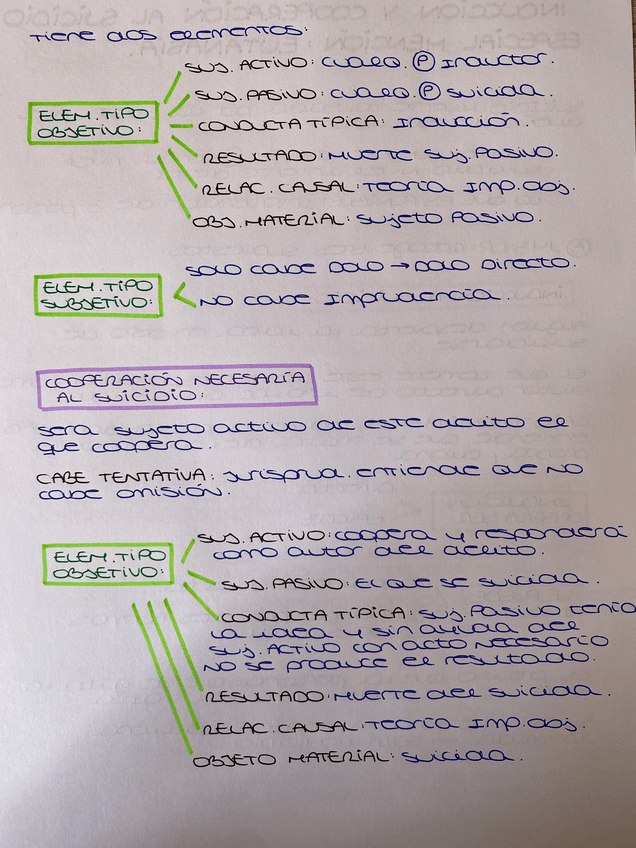 TIENE DOS ELEMENTOS:
ELEM. TIPO
OBJETIVO:
SUJ. ACTIVO: CUALQ. Ⓟ INDUCTOR.
SUJ. PASIVO: CUALQ. Ⓟ SUICIDA.
CONDUCTA TÍPICA: INDUCCIÓN.
RESULTADO: MUERTE SUJ. PASIVO.
RELAC. CAUSAL: TEORÍA IMP. OBJ.
OBJ. MATERIAL: SUJETO PASIVO.
ELEM. TIPO
SUBJETIVO:
SOLO CABE DOLO → DOLO DIRECTO.
NO CABE IMPRUDENCIA.
COOPERACIÓN NECESARIA
AL SUICIDIO:
SERA SUJETO ACTIVO DE ESTE DELITO EL
QUE COOPERA.
CABE TENTATIVA: JURISPRUD. ENTIENDE QUE NO
CABE OMISIÓN.
ELEM. TIPO
OBJETIVO:
SUJ. ACTIVO: COOPERA Y RESPONDERÁ
COMO AUTOR DEL DELITO.
SUJ. PASIVO: EL QUE SE SUICIDA.
CONDUCTA TÍPICA: SUJ. PASIVO TENÍA
LA IDEA Y SIN AYUDA DEL
SUJ. ACTIVO CON ACTO NECESARIO
NO SE PRODUCE EL RESULTADO.
RESULTADO: MUERTE DEL SUICIDA.
RELAC. CAUSAL: TEORÍA IMP. OBJ.
OBJETO MATERIAL: SUICIDA.